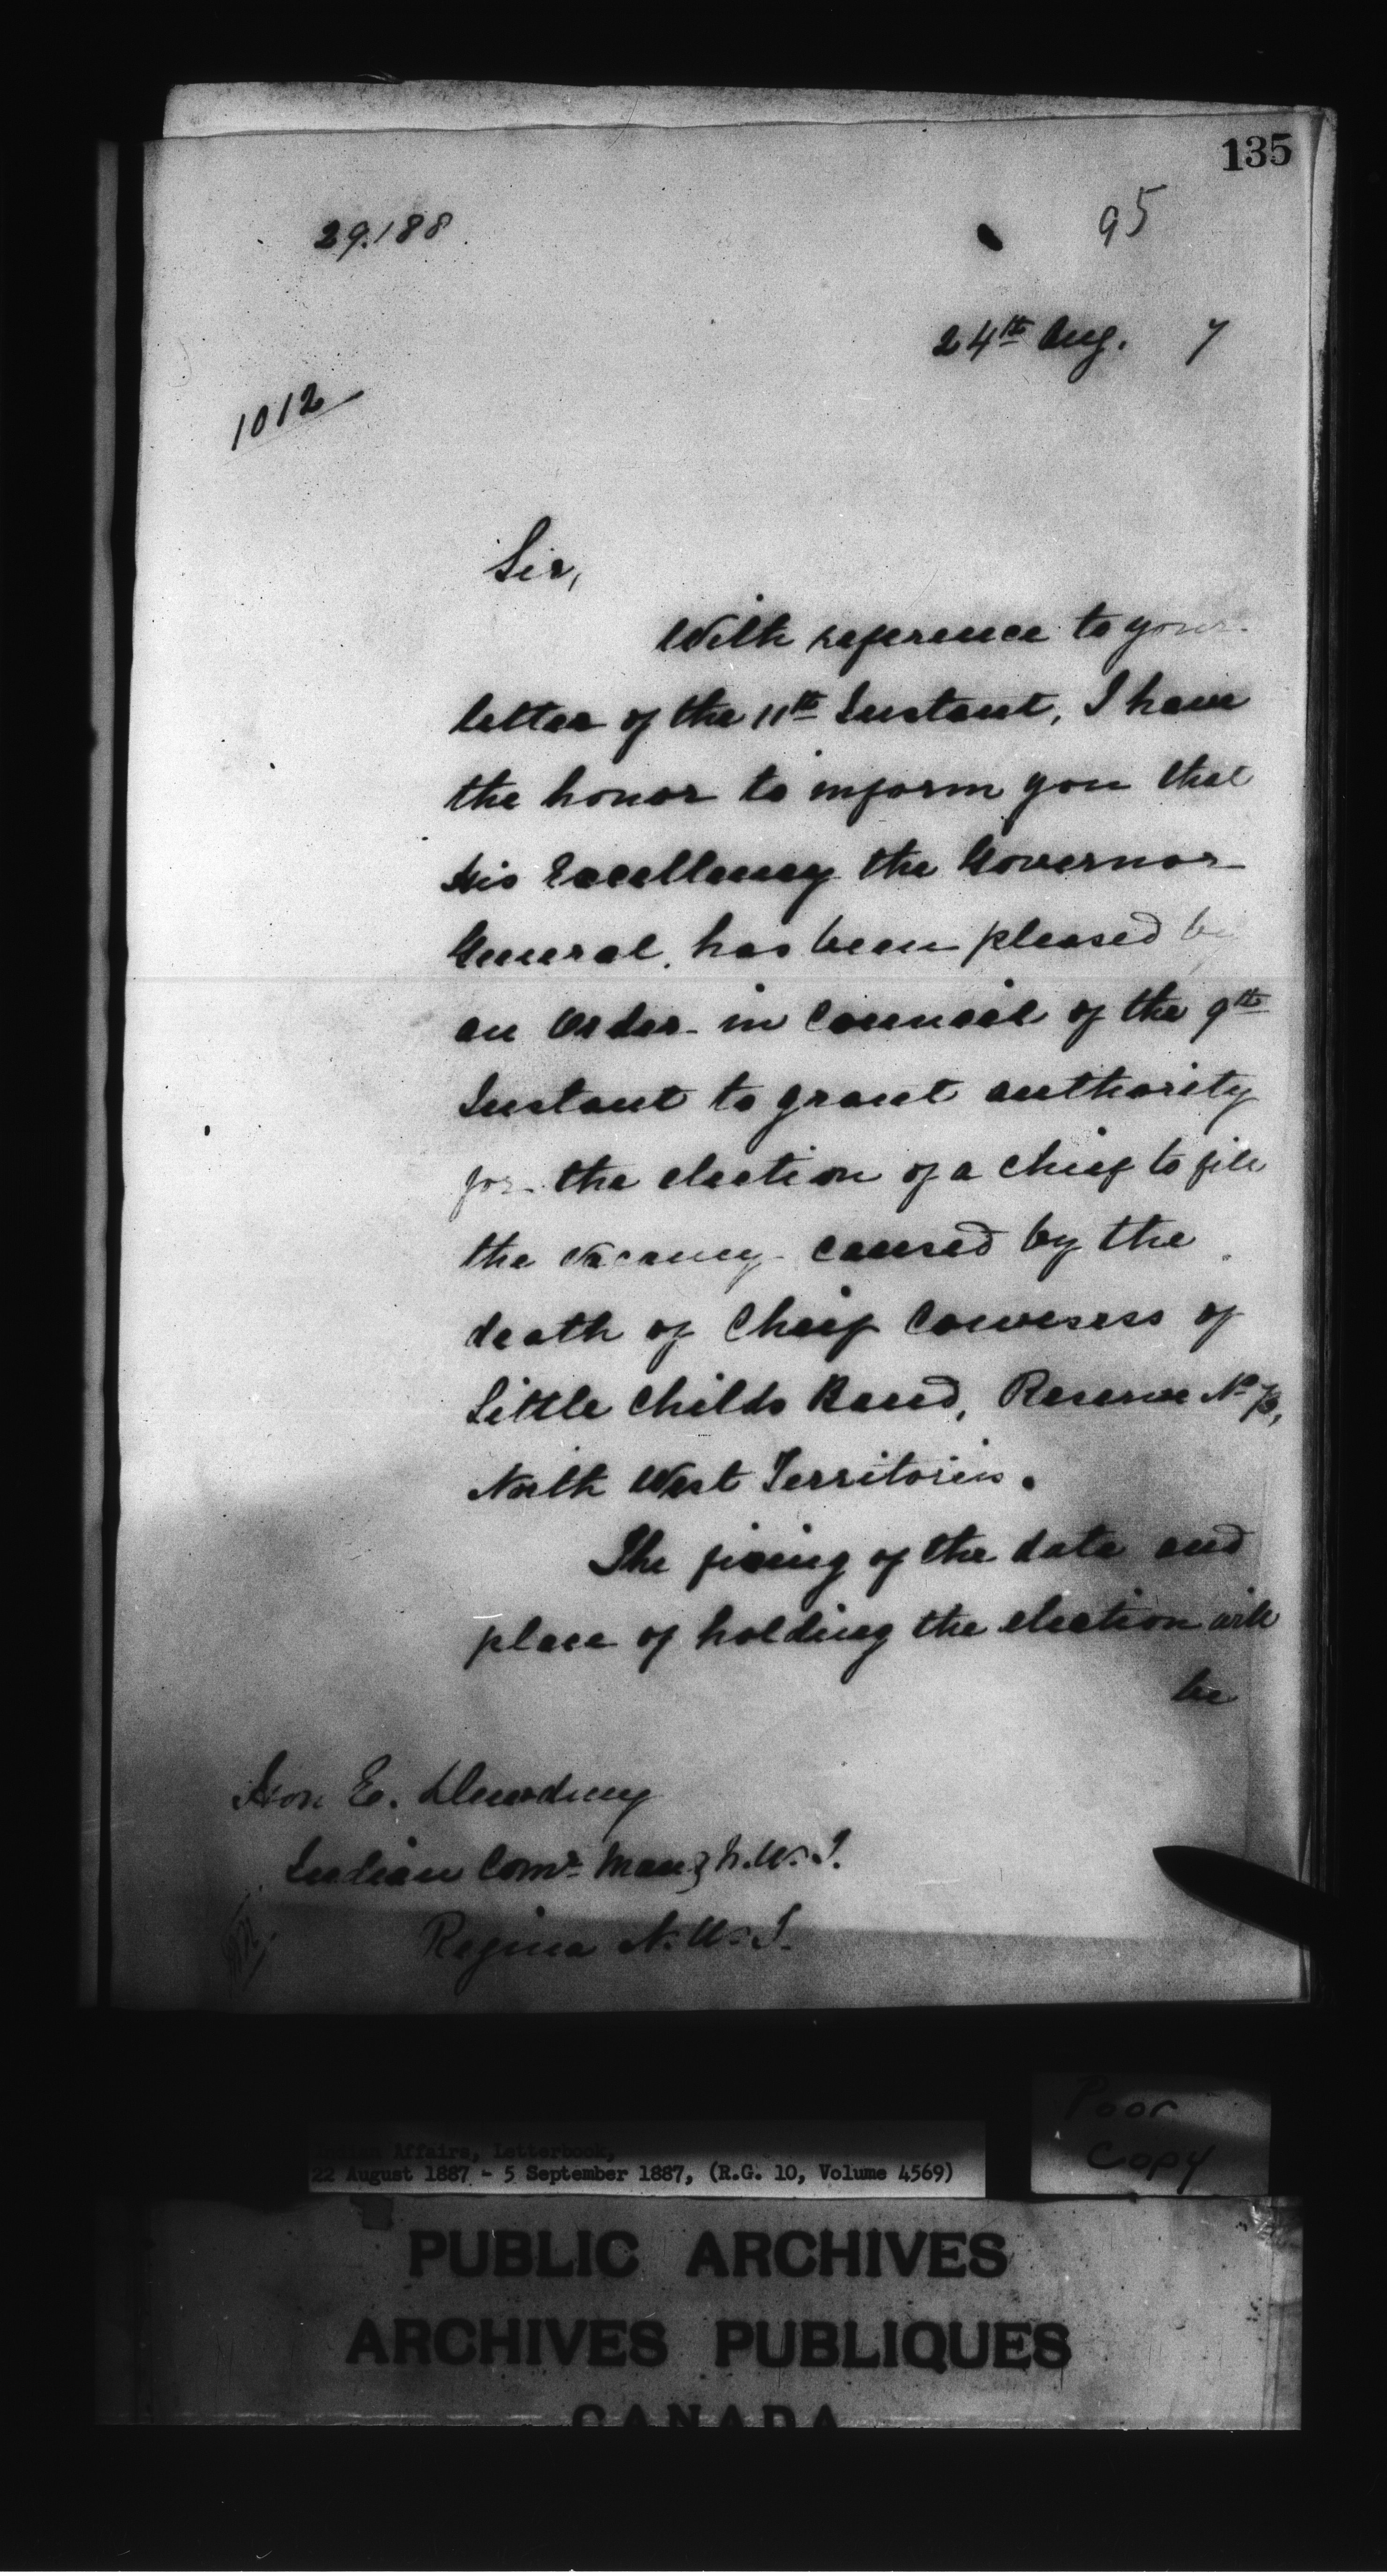 135
95
29.188
24th Aug. 7
1012
Sir,
With reference to your
letter of the 11th Instant, I have
the honor to inform you that
His Excellency the Governor
General, has been pleased by
an Order in Council of the 9th
Instant to grant authority
for the election of a Chief to fill
the vacancy caused by the
death of Chief Cowesess of
Little Childs Band, Reserve No 73,
North West Territories.
The fixing of the date and
place of holding the election will
be
Hon E. Dewdney
Indian Comr Man & N.W.T.
Regina N.W.T.
Poor
Copy
Indian Affairs, Letterbook,
22 August 1887 - 5 September 1887, (R.G. 10, Volume 4569)
PUBLIC ARCHIVES
ARCHIVES PUBLIQUES
CANADA